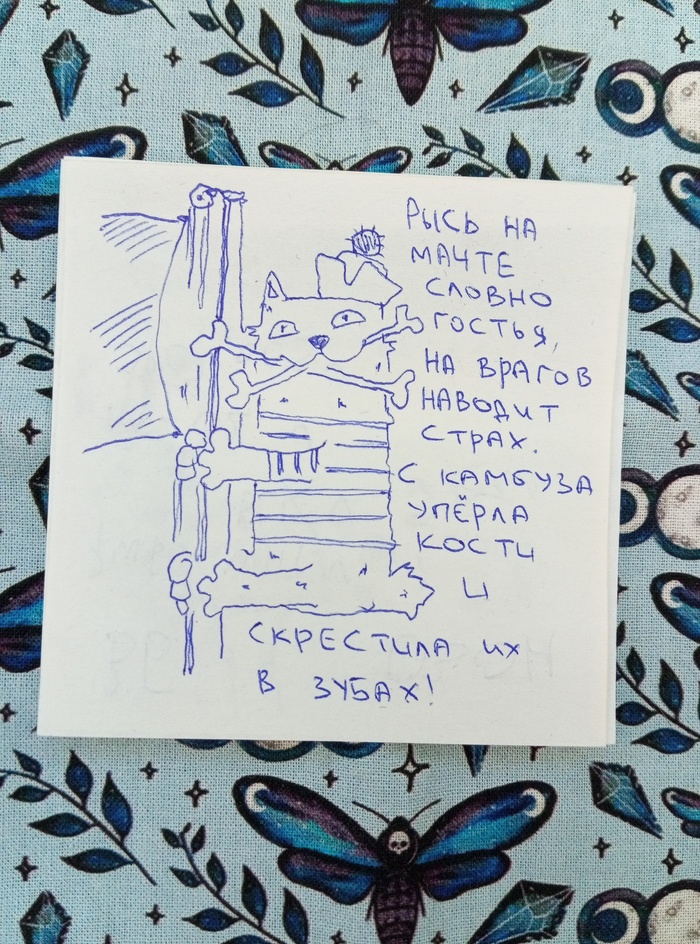 РЫСЬ НА
МАЧТЕ
СЛОВНО
ГОСТЬЯ,
НА ВРАГОВ
НАВОДИТ
СТРАХ.
С КАМБУЗА
УПЁРЛА
КОСТИ
И
СКРЕСТИЛА ИХ
В ЗУБАХ!